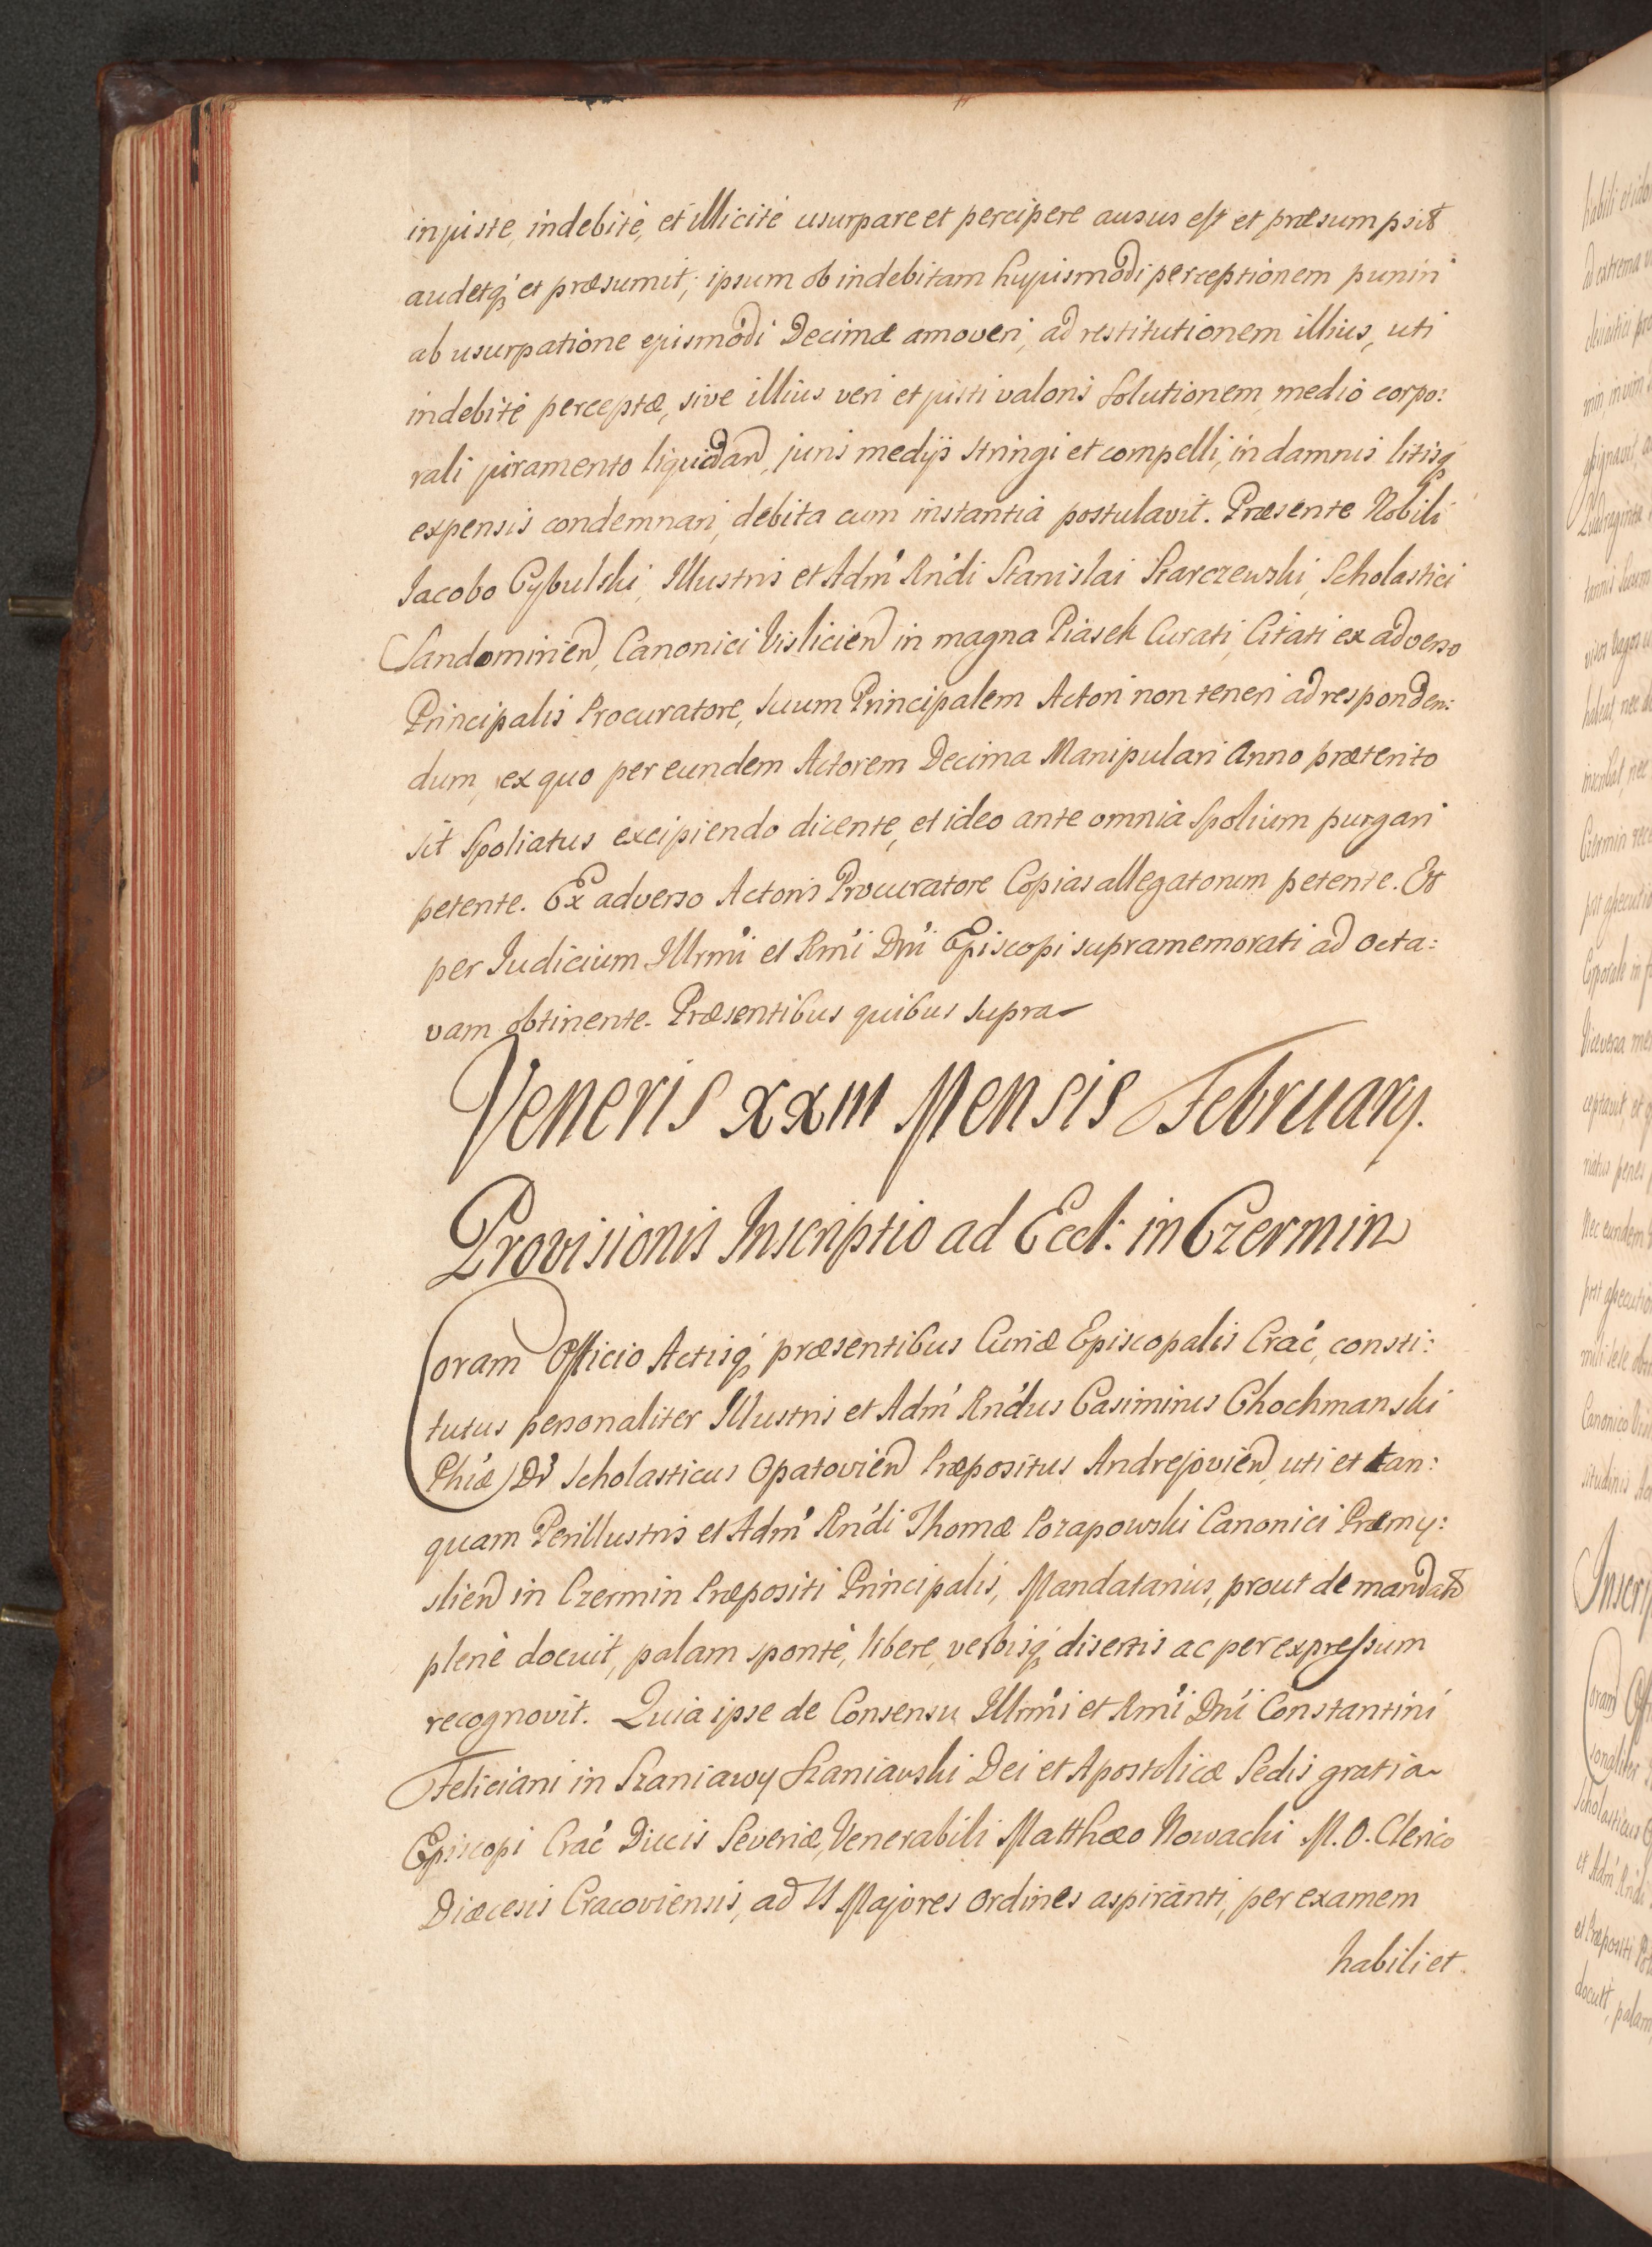 injuste, indebite, et illicite usurpare et percipere ausus est et præsumpsit
audetq́ et præsumit, ipsum ob indebitam hujusmodi perceptionem puniri
ab usurpatione ejusmodi Decimæ amoveri, ad restitutionem illius, uti
indebitè perceptæ, sive illius veri et justi valoris solutionem, medio corpo:
rali juramento liquidand, juris medijs stringi et compelli, in damnis litisq́
expensis condemnari, debita cum instantia postulavit. Præsente Nobili
Jacobo Cybulski, Illustris et Adm̃ Rńdi Stanislai Starczewski, Scholastici
Sandomirień, Canonici Vislicień in magna Piasek Curati, Citati ex adverso
Principalis Procuratore, suum Principalem Actori non teneri ad responden:
dum, ex quo per eundem Actorem Decima Manipulari Anno præterito
sit spoliatus excipiendo dicente, et ideo ante omnia spolium purgari
petente. Ex adverso Actoris Procuratore Copias allegatorum petente. Et
per Judicium Illrmi et Rmi Dni Episcopi supramemorati ad octa:
vam obtinente. Præsentibus quibus supra
Veneris XXIII Mensis February.
Provisionis Inscriptio ad Eccl: in Czermin
Coram Officio Actisq́ præsentibus Curiæ Episcopalis Crac̃, consti:
tutus personaliter Illustris et Adm̃ Rńdus Casimirus Chochmanski
Phiæ Dr Scholasticus Opatovień Præpositus Andrejovień, uti et tan:
quam Perillustris et Adm̃ Rńdi Thomæ Porapowski Canonici Præmy:
slień in Czermin Præpositi Principalis, Mandatarius, prout de mandato
plenè docuit, palam sponte, libere, verbisq́ disertis ac per expressum
recognovit. Quia ipse de Consensu Illrmi et Rmi Dni Constantini
Feliciani in Szaniawy Szaniawski Dei et Apostolicæ Sedis gratia
Episcopi Crac̃ Ducis Severiæ, Venerabili Matthæo Nowacki M. O. Clerico
Diæcesis Cracoviensis, ad SS Majores ordines aspiranti, per examem
habili et